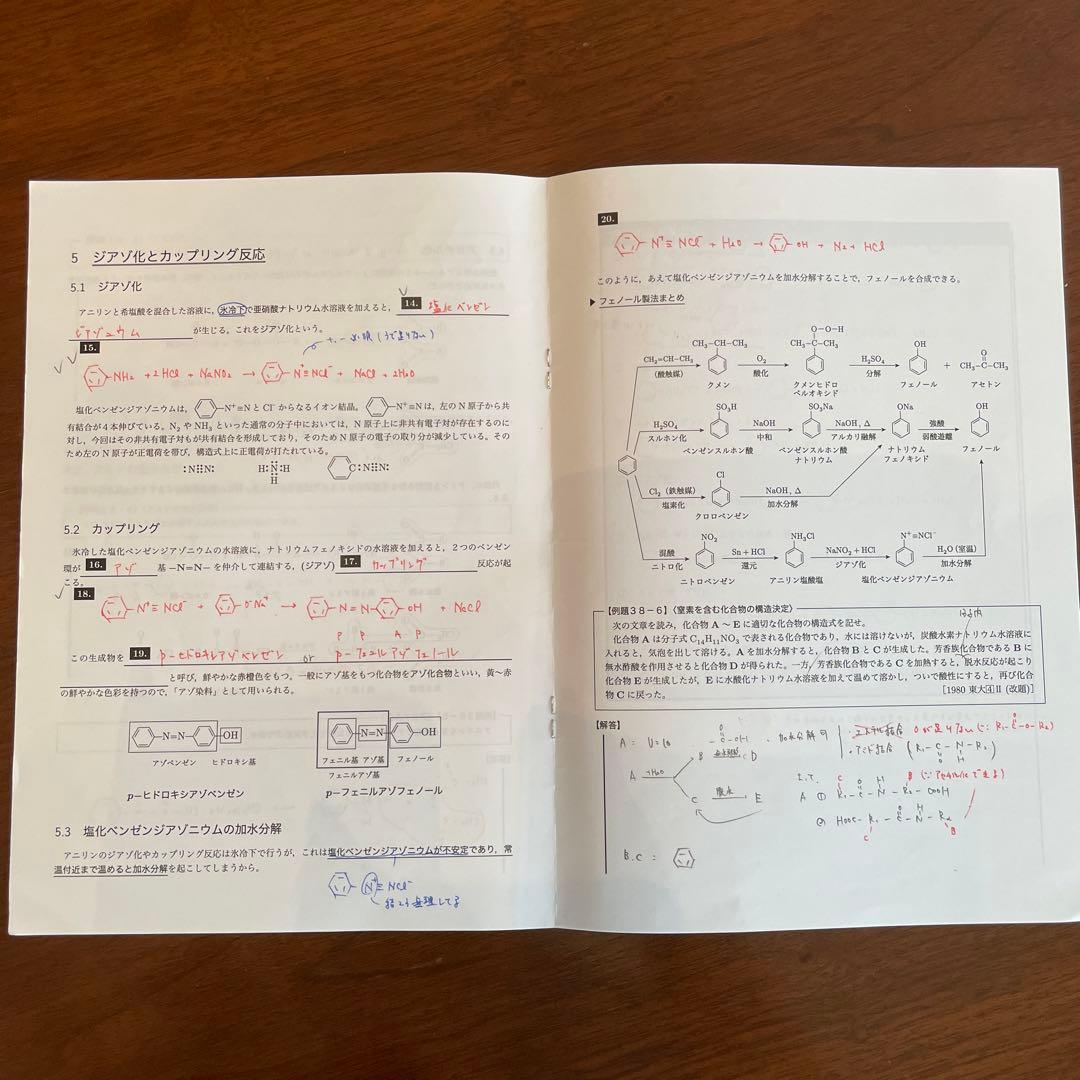 5 ジアゾ化とカップリング反応
5.1 ジアゾ化
アニリンと希塩酸を混合した溶液に，氷冷下で亜硝酸ナトリウム水溶液を加えると， 14. 塩化ベンゼン
ジアゾニウム が生じる．これをジアゾ化という．
15.
NH₂ + 2HCl + NaNO₂ → N⁺≡NCl⁻ + NaCl + 2H₂O
塩化ベンゼンジアゾニウムは， N⁺≡N と Cl⁻ からなるイオン結晶． N⁺≡N は，左の N 原子から共
有結合が４本伸びている．N₂ や NH₃ といった通常の分子中においては，N 原子上に非共有電子対が存在するのに
対し，今回はその非共有電子対もが共有結合を形成しており，そのため N 原子の電子の取り分が減少している．そ
のため左の N 原子が正電荷を帯び，構造式上に正電荷が打たれている．
:N⋮⋮N: H:N:H H C:N⋮⋮N:
5.2 カップリング
氷冷した塩化ベンゼンジアゾニウムの水溶液に，ナトリウムフェノキシドの水溶液を加えると，２つのベンゼン
環が 16. アゾ 基 −N=N− を仲介して連結する，(ジアゾ) 17. カップリング 反応が起
こる．
18.
N⁺≡NCl⁻ + O⁻Na⁺ → N=N OH + NaCl
P P A P
この生成物を 19. p-ヒドロキシアゾベンゼン or p-フェニルアゾフェノール
と呼び，鮮やかな赤橙色をもつ．一般にアゾ基をもつ化合物をアゾ化合物といい，黄〜赤
の鮮やかな色彩を持つので，「アゾ染料」として用いられる．
N=N OH N=N OH
アゾベンゼン ヒドロキシ基 フェニル基 アゾ基 フェノール
フェニルアゾ基
p−ヒドロキシアゾベンゼン p−フェニルアゾフェノール
5.3 塩化ベンゼンジアゾニウムの加水分解
アニリンのジアゾ化やカップリング反応は氷冷下で行うが，これは塩化ベンゼンジアゾニウムが不安定であり，常
温付近まで温めると加水分解を起こしてしまうから．
N⁺≡NCl⁻
20.
N⁺≡NCl⁻ + H₂O → OH + N₂ + HCl
このように，あえて塩化ベンゼンジアゾニウムを加水分解することで，フェノールを合成できる．
▶ フェノール製法まとめ
CH₂=CH−CH₃ (酸触媒) CH₃−CH−CH₃ クメン O₂ 酸化 O−O−H CH₃−C−CH₃ クメンヒドロペルオキシド H₂SO₄ 分解 OH フェノール + O CH₃−C−CH₃ アセトン
H₂SO₄ スルホン化 SO₃H ベンゼンスルホン酸 NaOH 中和 SO₃Na ベンゼンスルホン酸ナトリウム NaOH, Δ アルカリ融解 ONa ナトリウムフェノキシド 強酸 弱酸遊離 OH フェノール
Cl₂ (鉄触媒) 塩素化 Cl クロロベンゼン NaOH, Δ 加水分解
混酸 ニトロ化 NO₂ ニトロベンゼン Sn + HCl 還元 NH₃Cl アニリン塩酸塩 NaNO₂ + HCl ジアゾ化 N⁺≡NCl⁻ 塩化ベンゼンジアゾニウム H₂O (室温) 加水分解
【例題３８−６】〈窒素を含む化合物の構造決定〉
次の文章を読み，化合物 A 〜 E に適切な化合物の構造式を記せ．
化合物 A は分子式 C₁₄H₁₁NO₃ で表される化合物であり，水には溶けないが，炭酸水素ナトリウム水溶液に
入れると，気泡を出して溶ける．A を加水分解すると，化合物 B と C が生成した．芳香族化合物である B に
無水酢酸を作用させると化合物 D が得られた．一方，芳香族化合物である C を加熱すると，脱水反応が起こり
化合物 E が生成したが，E に水酸化ナトリウム水溶液を加えて温めて溶かし，ついで酸性にすると，再び化合
物 C に戻った．
[1980 東大④II (改題)]
【解答】
A : U=10 −C−OH ・加水分解可 ・エステル結合 Oが足りない (∵ R₁−C−O−R₂)
・アミド結合 (R₁−C−N−R₂)
A +H₂O B D
C 脱水 E
A ① R₁−C−N−R₂−COOH
② HOOC−R₁−C−N−R₂
C B
B.C :